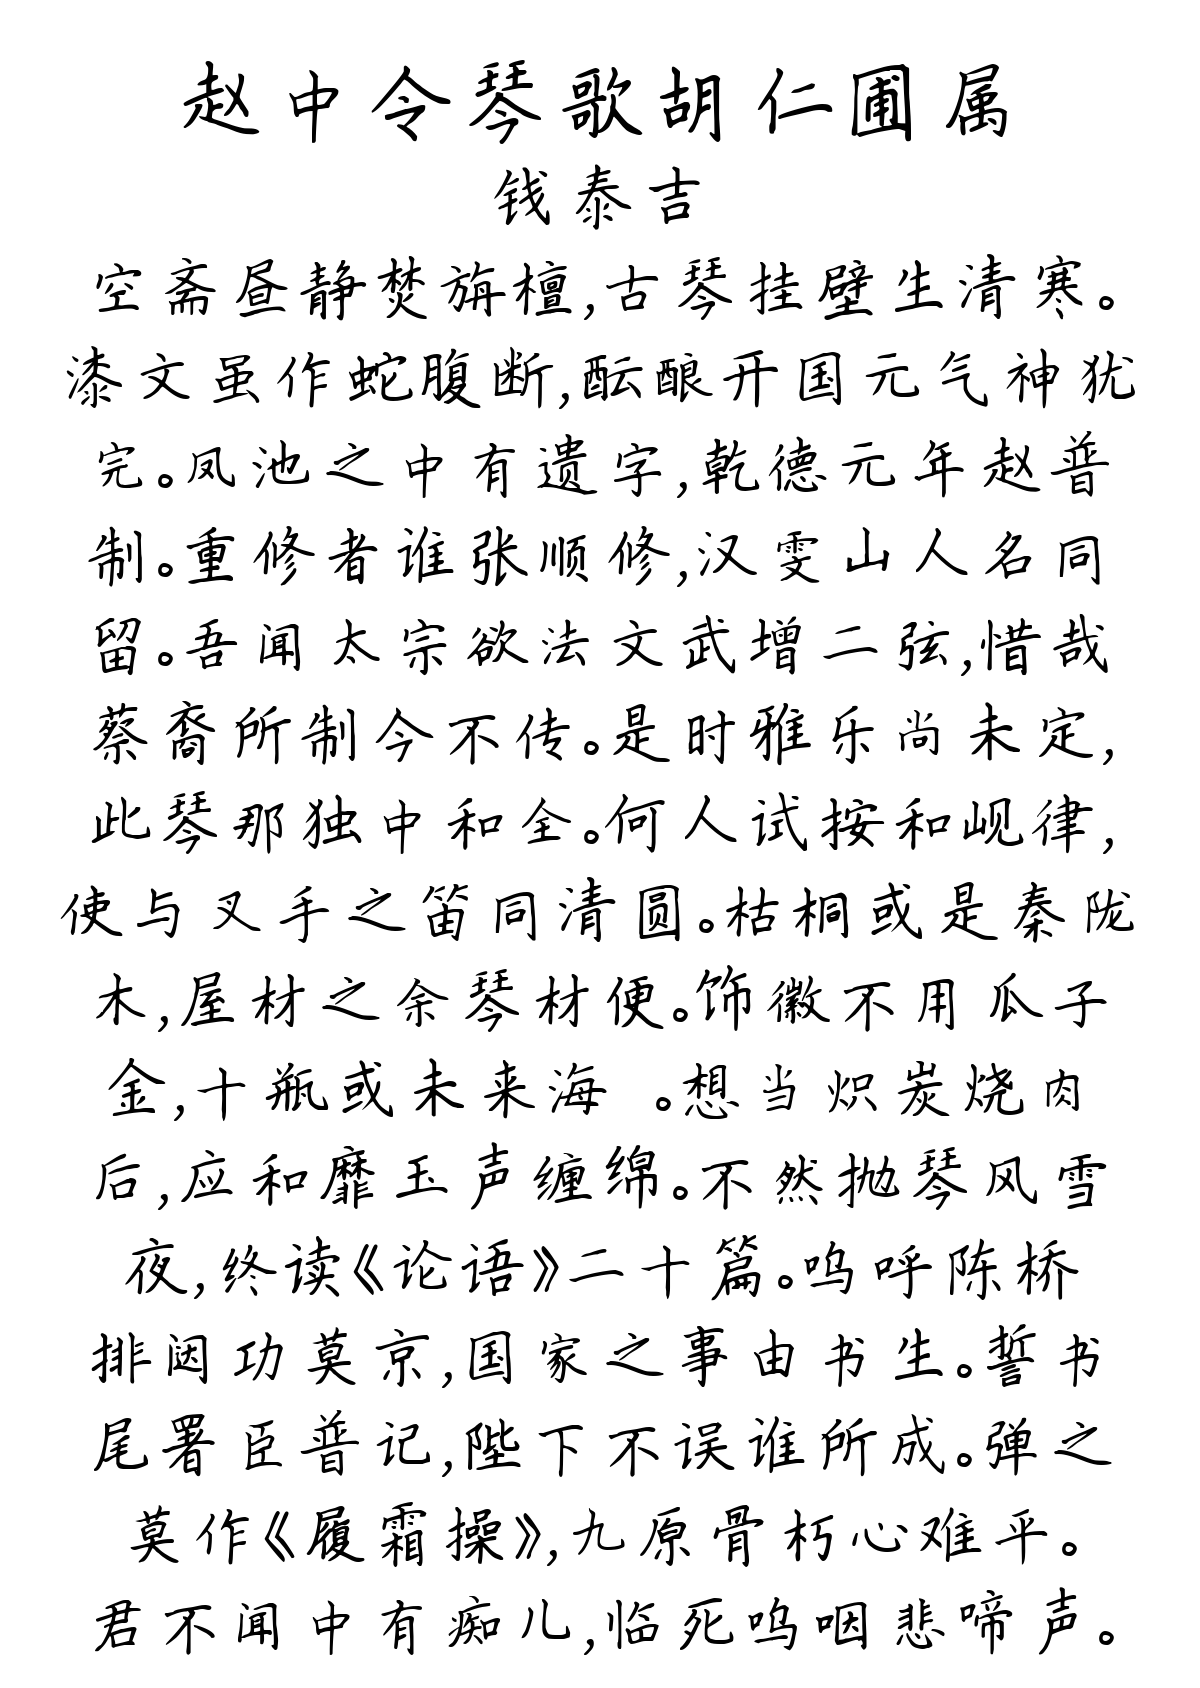 赵中令琴歌胡仁圃属
钱泰吉
空斋昼静焚旃檀,古琴挂壁生清寒。
漆文虽作蛇腹断,酝酿开国元气神犹
完。凤池之中有遗字,乾德元年赵普
制。重修者谁张顺修,汉雯山人名同
留。吾闻太宗欲法文武增二弦,惜哉
蔡裔所制今不传。是时雅乐尚未定,
此琴那独中和全。何人试按和岘律,
使与叉手之笛同清圆。枯桐或是秦陇
木,屋材之余琴材便。饰徽不用瓜子
金,十瓶或未来海 。想当炽炭烧肉
后,应和靡玉声缠绵。不然抛琴风雪
夜,终读《论语》二十篇。呜呼陈桥
排闼功莫京,国家之事由书生。誓书
尾署臣普记,陛下不误谁所成。弹之
莫作《履霜操》,九原骨朽心难平。
君不闻中有痴儿,临死呜咽悲啼声。